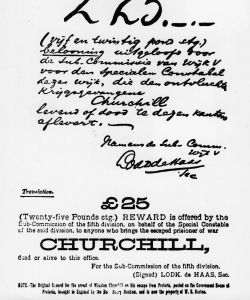 £25.–.–
(vijf en twintig pond stg.)
belooning uitgeloofd door
de Sub-Commissie van Wijk V
voor den Specialen Constabel
dezer wijk, die den ontvluchte
Krijgsgevangene
Churchill
levend of dood te dezen kantore
aflevert.
Namens de Sub-Comm.
Wijk V
Lodk de Haas
Sec.
Translation.
£25
(Twenty-five Pounds stg.) REWARD is offered by the
Sub-Commission of the fifth division, on behalf of the Special Constable
of the said division, to anyone who brings the escaped prisoner of war
CHURCHILL,
dead or alive to this office.
For the Sub-Commission of the fifth division.
(Signed) LODK. de HAAS, Sec.
NOTE.-The Original Reward for the arrest of Winston Churchill on his escape from Pretoria, posted on the Government House at
Pretoria, brought to England by the Hon. Henry Masham, and is now the property of W. R. Burton.